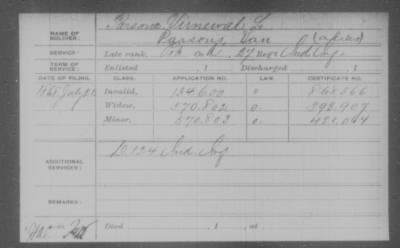 NAME OF SOLDIER: Parsons, Vernewal, L.
Parsons, Van (alias)
SERVICE: Late rank, Co. 27 Reg't Ind. Inf.
TERM OF SERVICE: Enlisted , 1 Discharged , 1
DATE OF FILING. CLASS. APPLICATION NO. LAW. CERTIFICATE NO.
Invalid, 134,600 868,566
Widow, 570,802 393,907
Minor, 570,803 421,044
ADDITIONAL SERVICES: D 124 Ind. Inf.
REMARKS:
Died , 1 , at